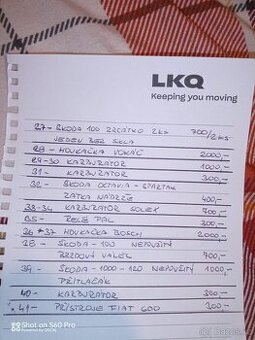 LKQ
Keeping you moving
27- ŠKODA 100 ZRCÁTKO 2ks 700/2ks
JEDEN BEZ SKLA
28 - HOUKAČKA 2000,-
29-30 KARBURÁTOR 1000,-
31 - KARBURÁTOR 300,-
32 - ŠKODA OCTAVIA - SPARTAK
ZÁTKA NÁDRŽE 400,-
33-34 KARBURÁTOR SOLEX 700,-
35- RELÉ PAL 300,-
36 + 37 HOUKAČKA BOSCH 2000,-
38 - ŠKODA - 100 NEPOUŽITÝ
BRZDOVÝ VÁLEC 700,-
39 - ŠKODA - 1000 - 120 NEPOUŽITÝ 1000,-
PŘÍTLAČÁK
40 - KARBURÁTOR 300,-
41 - PŘÍSTROJE FIAT 600 300,-
Shot on S60 Pro